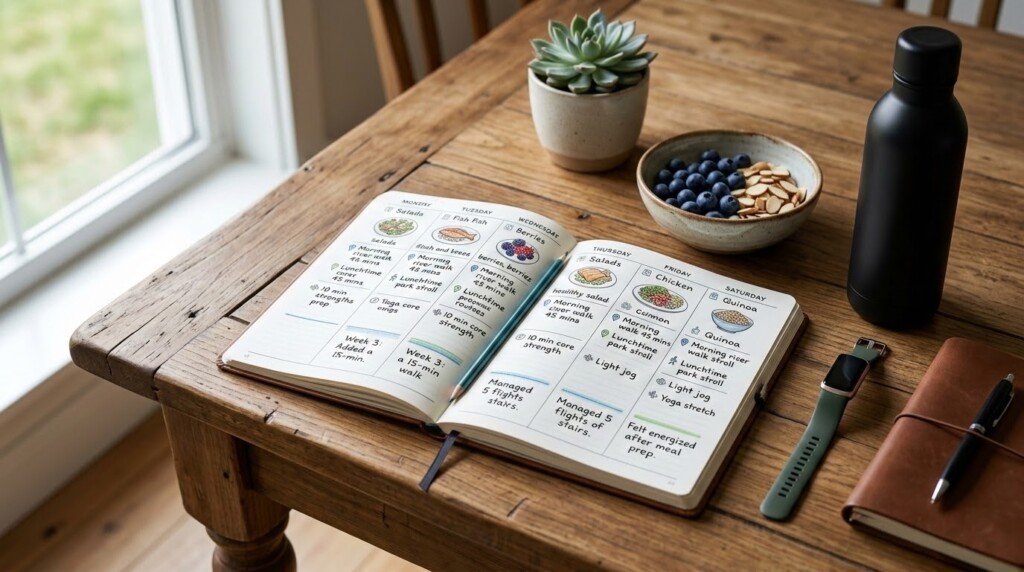 MONDAY
Salads
Salads
Morning
river walk
45 mins
Lunchtime
45 mins
10 min
strengths
prep
TUESDAY
Fish Fish
fish and
Morning
river walk
45 mins
Lunchtime
park stroll
Yoga core
Week 3:
Added a
15-min.
WEDNESDAY
Berries
berries, berries
Morning
river walk
45 mins
Lunchtime
10 min core
strength
Week 3:
a 15-min
walk
THURSDAY
Salads
healthy salad
Morning
river walk
45 mins
10 min core
strength
Managed
5 flights
stairs.
FRIDAY
Chicken
Morning
walk 45 mins
Lunchtime
park stroll
Light jog
Managed 5
flights of
stairs.
SATURDAY
Quinoa
Quinoa
Morning river
walk stroll
Lunchtime
park stroll
Light jog
Yoga stretch
Felt energized
after meal
prep.